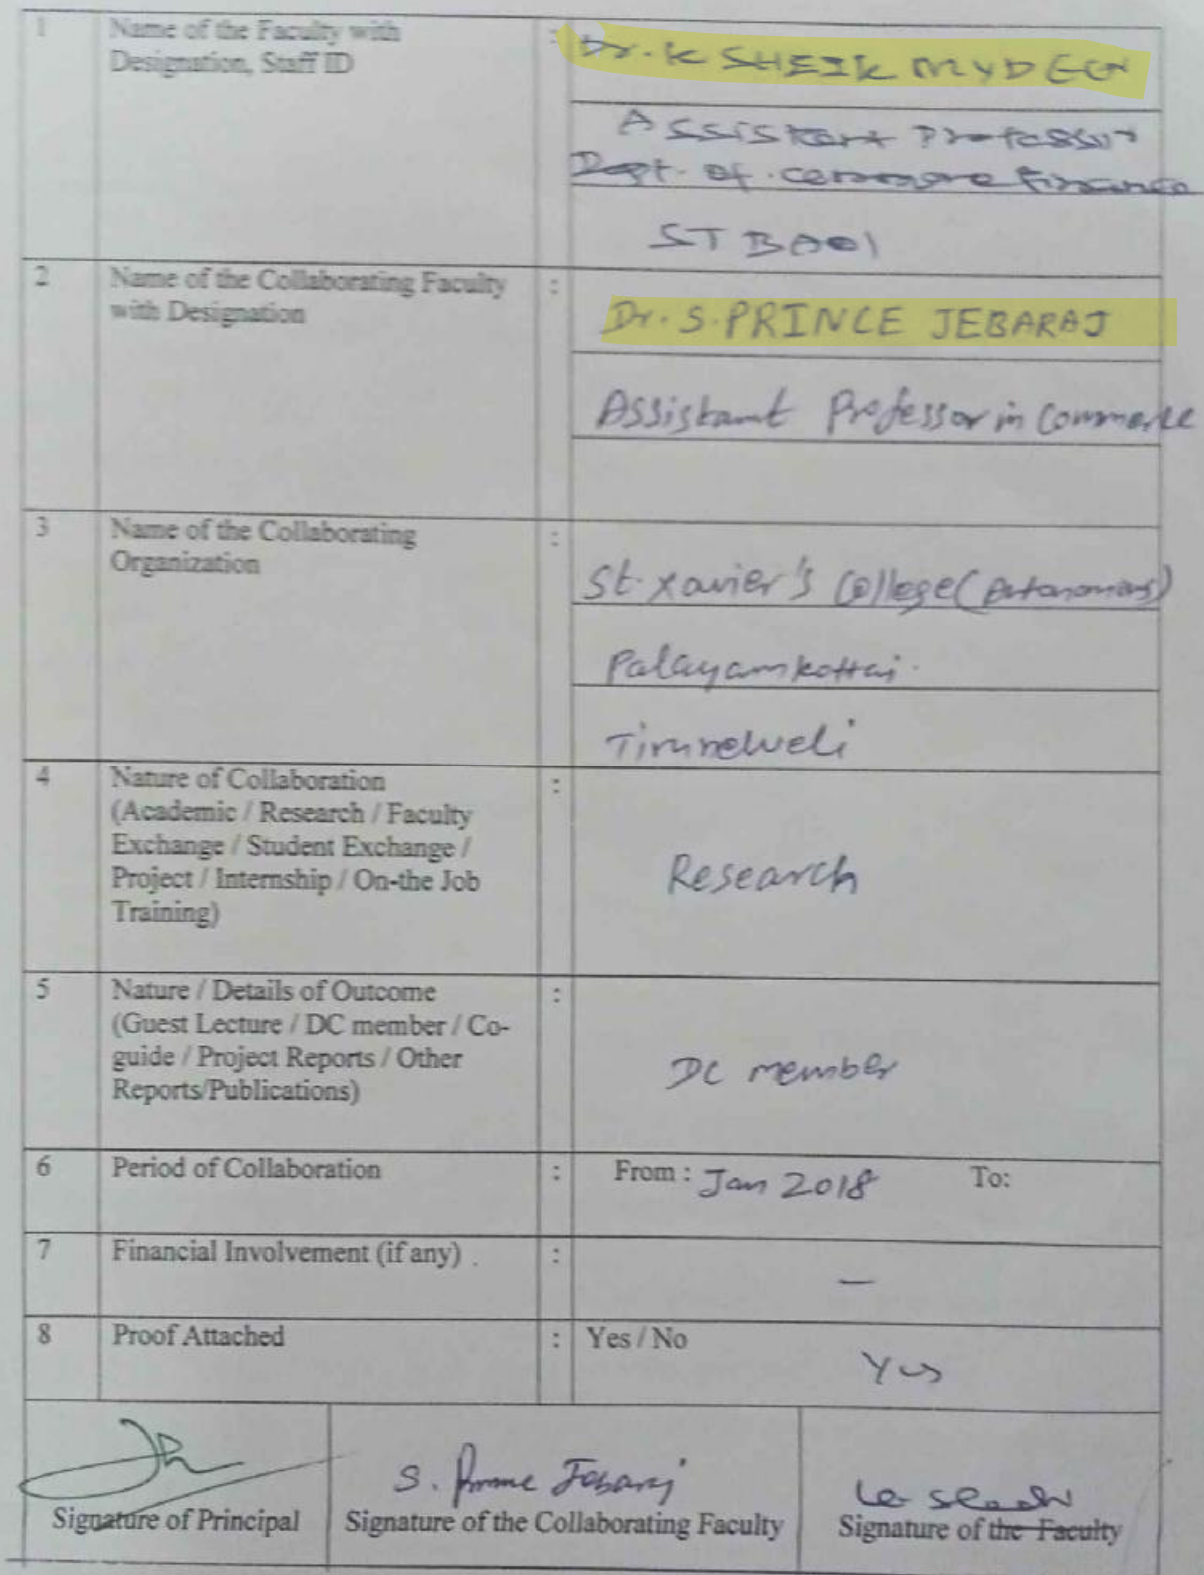 1 Name of the Faculty with : Dr. K SHEIK MYDEEN
Designation, Staff ID
Assistant Professor
Dept. of. commerce finance
2 Name of the Collaborating Faculty :
with Designation Dr. S. PRINCE JEBARAJ
Assistant Professor in Commerce
3 Name of the Collaborating :
Organization St. Xavier's College (Autonomous)
Palayamkottai.
Tirunelveli
4 Nature of Collaboration :
(Academic / Research / Faculty
Exchange / Student Exchange /
Project / Internship / On-the Job Research
Training)
5 Nature / Details of Outcome :
(Guest Lecture / DC member / Co-
guide / Project Reports / Other DC member
Reports/Publications)
6 Period of Collaboration : From : Jan 2018 To:
7 Financial Involvement (if any) . : —
8 Proof Attached : Yes / No Yes
S. Prince Jebaraj
Signature of Principal Signature of the Collaborating Faculty Signature of the Faculty